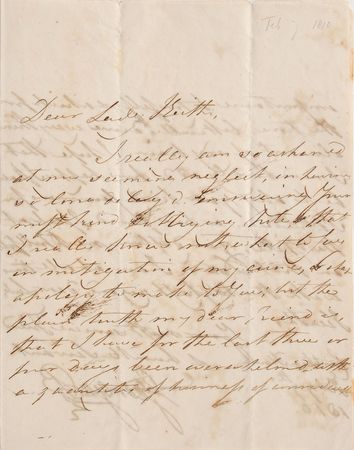 Feb 7 1810
Dear Lady Keith,
I really am so ashamed
at my seeming neglect, in having
so long delay'd answering your
most kind & obliging Note, that
I really know not what to say
in mitigation of my crime, or
apology to make to you, but the
plain truth my dear friend is,
that I have for the last three or
four days been overwhelmed with
a quantity of business of